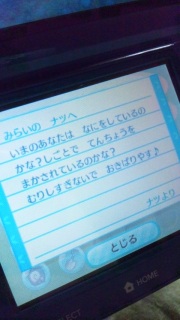 みらいの ナツへ
いまのあなたは なにをしているの
かな?しごとで てんちょうを
まかされているのかな?
むりしすぎないで おきばりやす♪
ナツより
とじる
SELECT
HOME